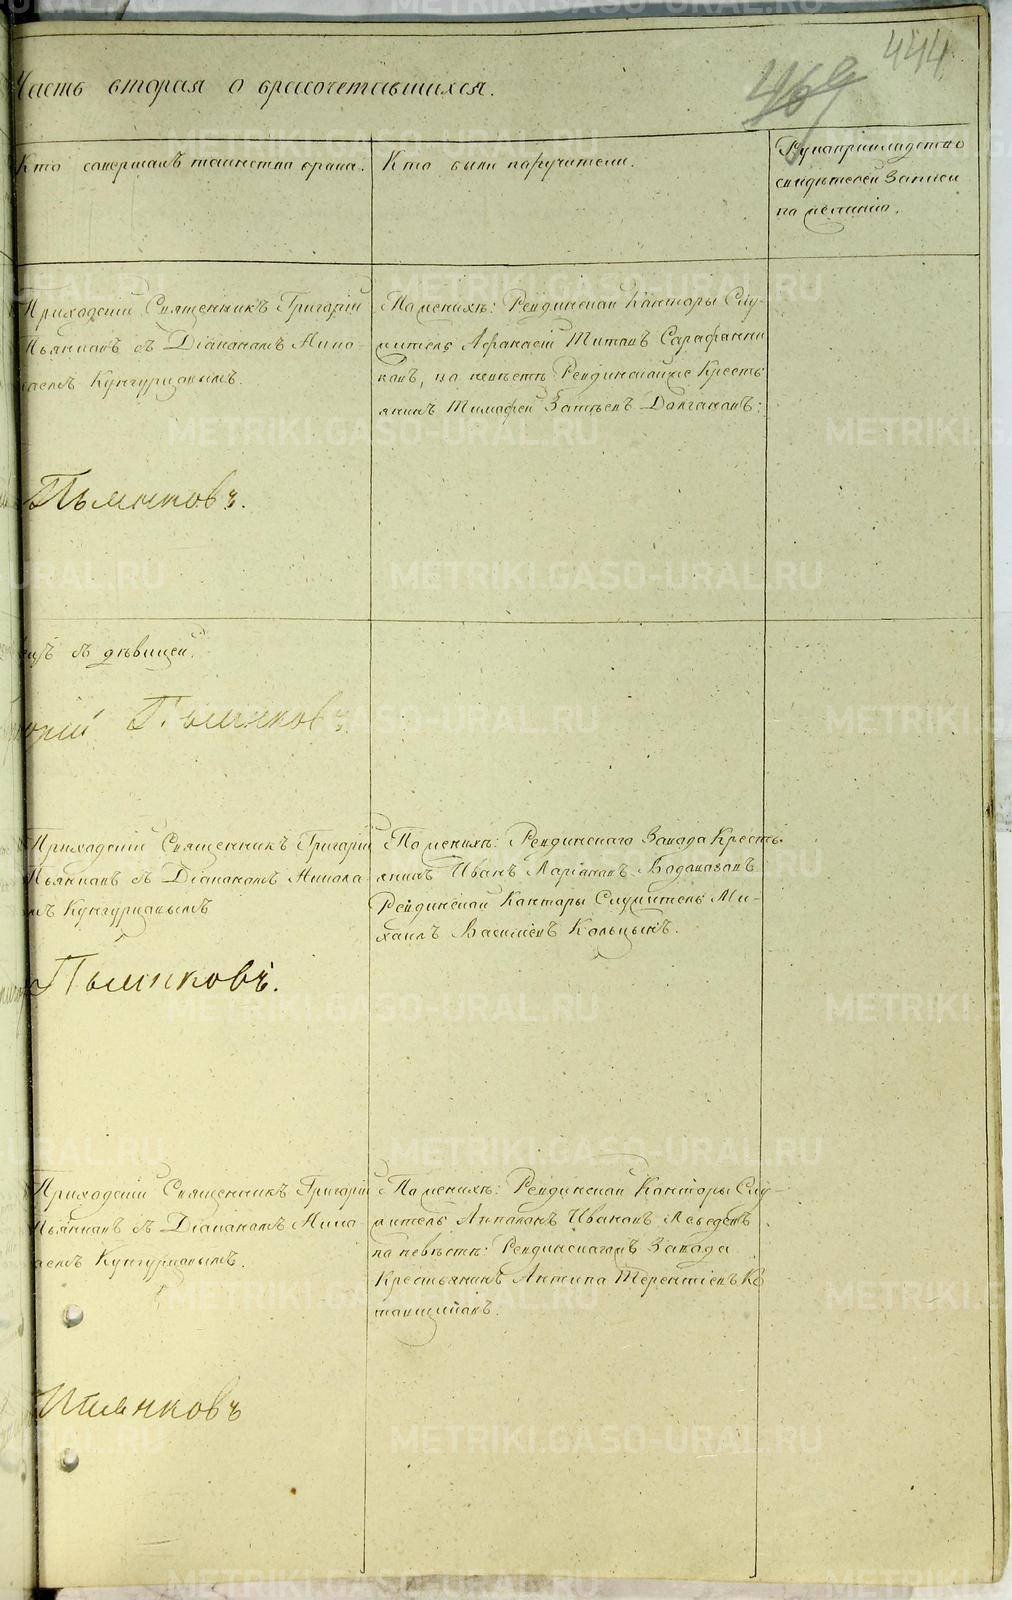 444
469
Часть вторая о бракосочетавшихся.
Кто совершалъ таинство брака.
Кто были поручители.
Рукоприкладство
свидѣтелей записи
по желанію.
Приходскій Священникъ Григорій
Пьянковъ съ Діакономъ Нико-
лаемъ Кунгурцовымъ.
По женихѣ: Ревдинской Канторы Слу-
житель Афанасій Титовъ Сарафанни
ковъ, по невѣстѣ: Крестъ
янинъ Тимофей Долгановъ:
Пьянковъ.
съ дѣвицей.
Пьянковъ
Приходскій Священникъ Григорій
Пьянковъ съ Діакономъ Никола
мъ Кунгурцовымъ
По женихѣ: Ревдинскаго Завода Кресть-
янинъ Иванъ Ларіоновъ
Ревдинской Канторы Служитель Ми-
хаилъ Васильевъ Кольцынъ.
Пьянковъ.
Приходскій Священникъ Григорій
Пьянковъ съ Діакономъ Нико
лаемъ Кунгурцовымъ.
По женихѣ: Ревдинской Канторы Слу-
житель Ивановъ Лебедевъ
по невѣстѣ: Завода
Крестьянинъ Антипа Терентіевъ
Пьянковъ
METRIKI.GASO-URAL.RU